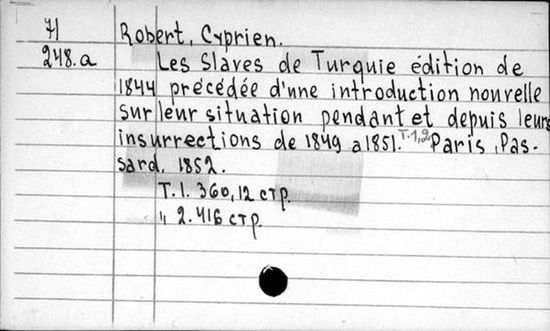 71 Robert, Cyprien.
248.a Les Slaves de Turquie édition de
1844 précédée d'une introduction nouvelle
sur leur situation pendant et depuis leurs
insurrections de 1849 a 1851. T.1,2 Paris, Pas-
sard, 1852.
T.1. 360,12 стр.
" 2. 416 стр.